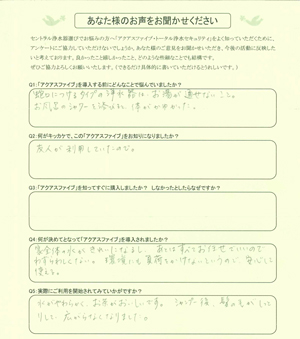 あなた様のお声をお聞かせください
セントラル浄水器選びでお悩みの方へ「アクアスファイブ・トータル浄水セキュリティ」をよく知っていただくために、
アンケートにご協力していただけないでしょうか。あなた様のご意見をお聞かせいただき、今後の活動に反映した
いと考えております。良かったこと・嬉しかったこと、どのような些細なことでも結構です。
ぜひご協力よろしくお願いいたします。(できるだけ具体的に書いていただけるとうれしいです。)
Q1:「アクアスファイブ」を導入する前にどんなことで悩んでいましたか?
蛇口につけるタイプの浄水器は、お湯が通せないこと。
お風呂のシャワーを浴びると、体がかゆかった。
Q2:何がキッカケで、この「アクアスファイブ」をお知りになりましたか?
友人が利用していたので。
Q3:「アクアスファイブ」を知ってすぐに購入しましたか? しなかったとしたらなぜですか?
Q4:何が決めてとなって「アクアスファイブ」を導入されましたか?
家全体の水がきれいになるし、あとはすべてお任せでいいので
わずらわしくない。環境にも負荷をかけないというので、安心して
使える。
Q5:実際にご利用を開始されてみていかがですか?
水がやわらかく、お茶がおいしいです。
広がらなくなりました。